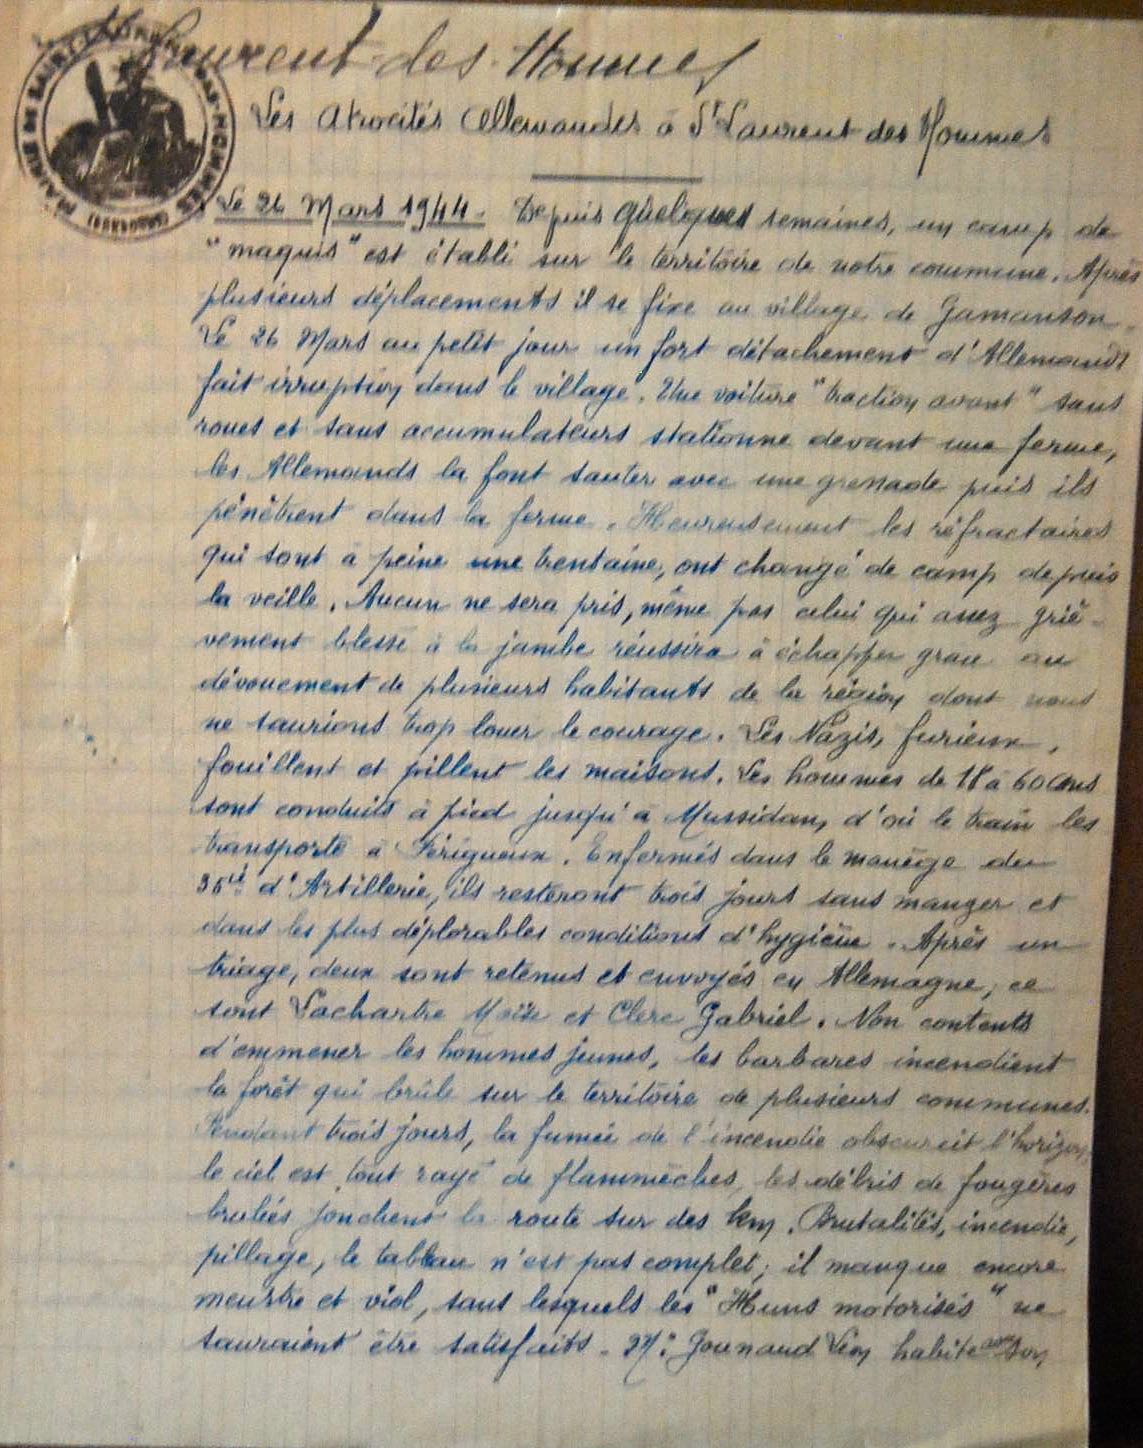 St Laurent-des-Hommes
MAIRIE DE SAINT LAURENT-DES-HOMMES (DORDOGNE)
Les Atrocités Allemandes à St Laurent des Hommes
Le 26 Mars 1944. Depuis quelques semaines, un camp de
"maquis" est établi sur le territoire de notre commune. Après
plusieurs déplacements il se fixe au village de Gamanson.
Le 26 Mars au petit jour un fort détachement d'Allemands
fait irruption dans le village. Une voiture "traction avant" sans
roues et sans accumulateurs stationne devant une ferme,
les Allemands la font sauter avec une grenade puis ils
pénètrent dans la ferme. Heureusement les réfractaires
qui sont à peine une trentaine, ont changé de camp depuis
la veille. Aucun ne sera pris, même pas celui qui assez griè-
vement blessé à la jambe réussira à échapper grace au
dévouement de plusieurs habitants de la région dont nous
ne saurions trop louer le courage. Les Nazis, furieux,
fouillent et pillent les maisons. Les hommes de 18 à 60 ans
sont conduits à pied jusqu'à Mussidan, d'où le train les
transporte à Périgueux. Enfermés dans le manège du
35ie d'Artillerie, ils resteront trois jours sans manger et
dans les plus déplorables conditions d'hygiène. Après un
triage, deux sont retenus et envoyés en Allemagne, ce
sont Lachartre et Clerc Gabriel. Non contents
d'emmener les hommes jeunes, les barbares incendient
la forêt qui brûle sur le territoire de plusieurs communes.
Pendant trois jours, la fumée de l'incendie obscurcit l'horizon,
le ciel est tout rayé de flammèches, les débris de fougères
brulées jonchent la route sur des km. Brutalités, incendie,
pillage, le tableau n'est pas complet; il manque encore
meurtre et viol, sans lesquels les "Huns motorisés" ne
sauraient être satisfaits. Mr Gounaud Léon habite avec son